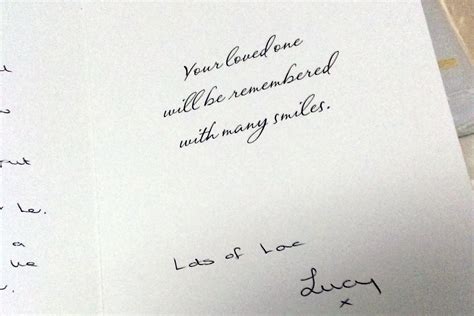 Your loved one
will be remembered
with many smiles.
Lots of Love
Lucy
x
a